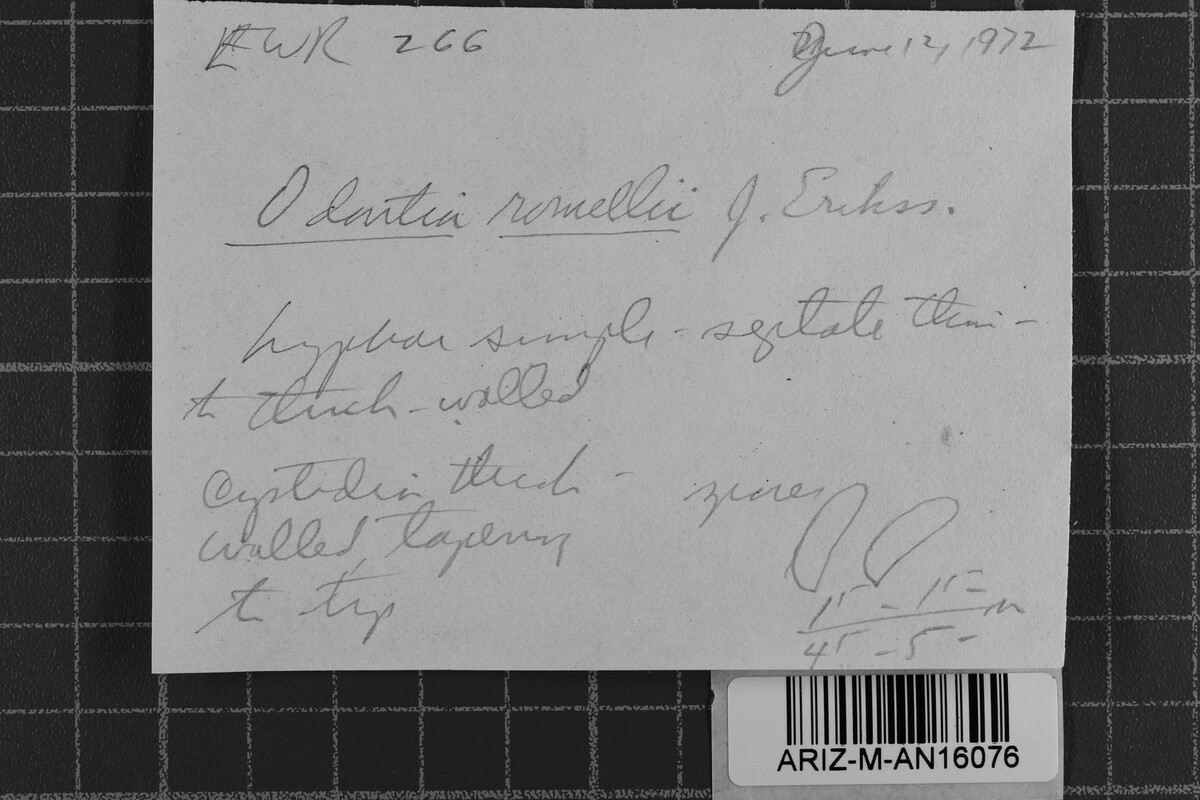 EWR 266 June 12, 1972
Odontia romellii J. Erikss.
hyphae simple-septate thin-
to thick-walled
Cystidia thick-
walled, tapering
to tip
spores
15 - 15
4 5 - 5
ARIZ-M-AN16076